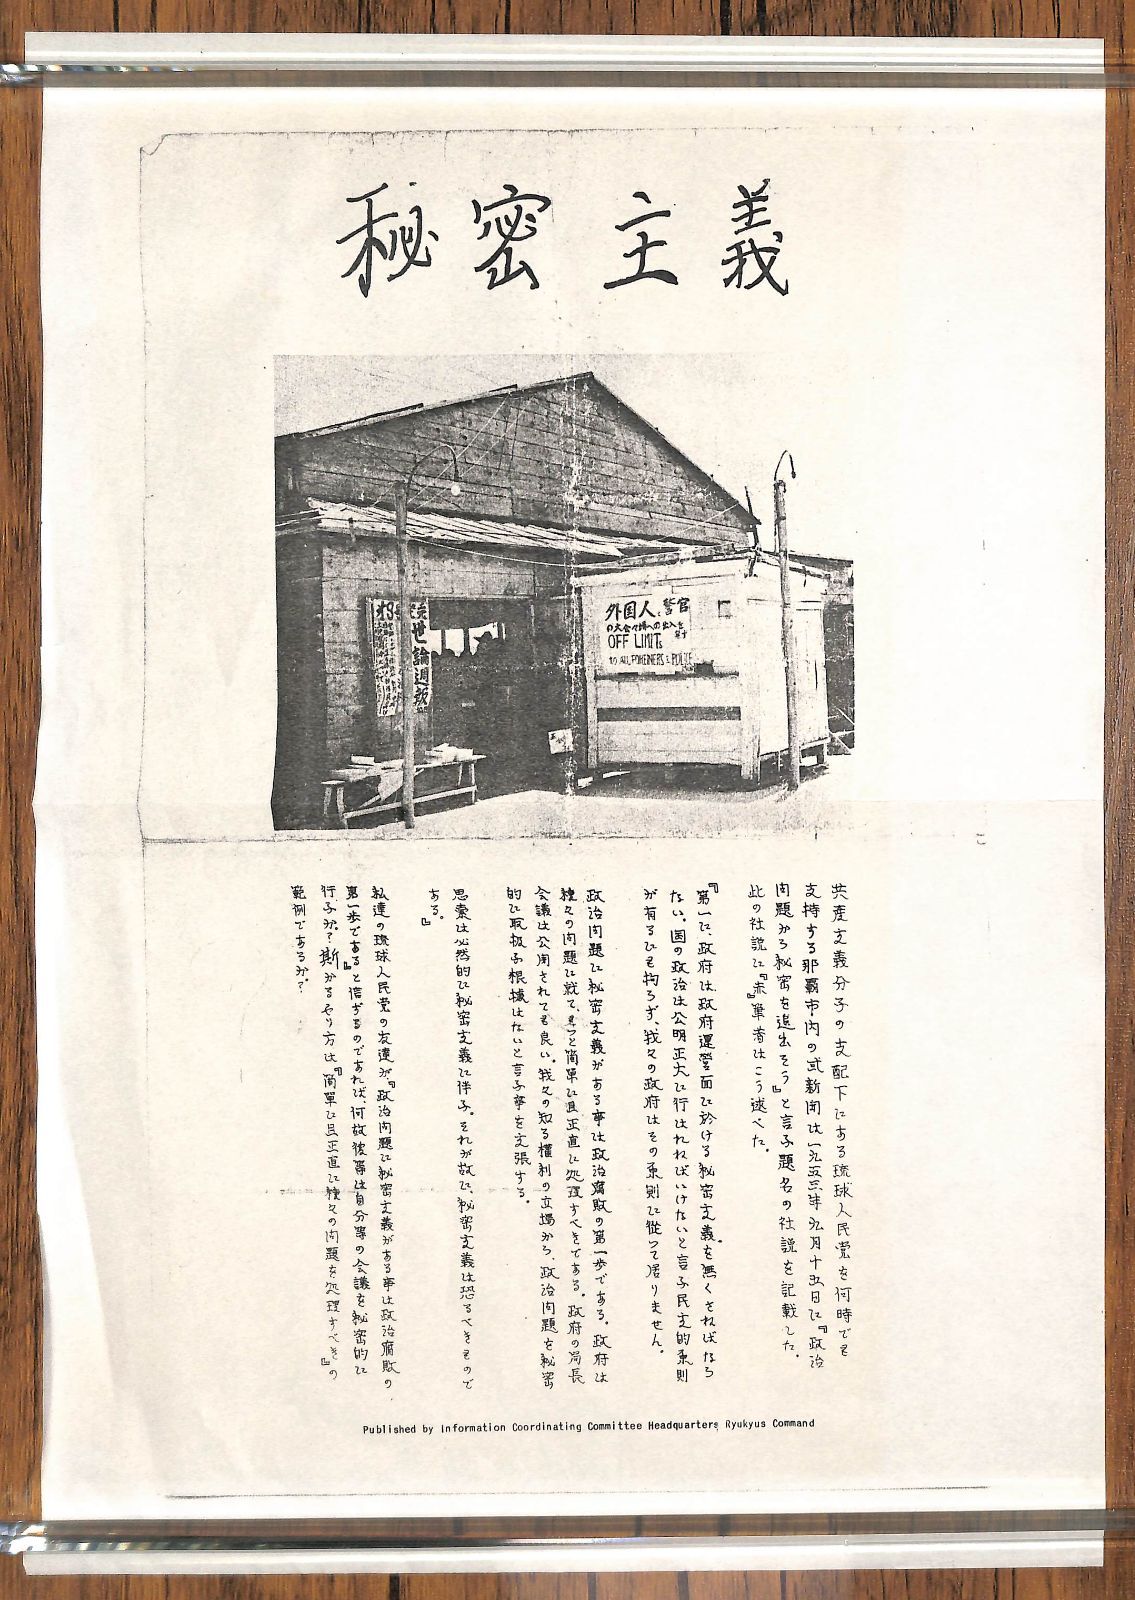 秘密主義
世論週報
外国人、警官
の大会々場への出入を
禁ず
OFF LIMITS
TO ALL FOREINERS & POLICE
共産主義分子の支配下にある琉球人民党を何時でも
支持する那覇市内の或新聞は一九五三年九月十五日に『政治
問題から秘密を追出そう』と言う題名の社説を記載した。
此の社説に『赤』筆者はこう述べた。
『第一に、政府は、政府運営面に於ける秘密主義を無くさねばなら
ない。国の政治は公明正大に行はれねばいけないと言う民主的原則
が有るにも拘らず、我々の政府はその原則に従って居りません。
政治問題に秘密主義がある事は政治腐敗の第一歩である。政府は
種々の問題に就て、もっと簡単に且正直に処理すべきである。政府の局長
会議は公開されても良い。我々の知る権利の立場から、政治問題を秘密
的に取扱う根據はないと言う事を主張する。
思索は必然的に秘密主義に伴う。それが故に、秘密主義は恐るべきもので
ある。』
私達の琉球人民党の友達が『政治問題に秘密主義がある事は政治腐敗の
第一歩である』と信ずるのであれば、何故彼等は自分等の会議を秘密的に
行うか?斯かるやり方は『簡単に且正直に種々の問題を処理すべき』の
範例であるか?
Published by Information Coordinating Committee Headquarters Ryukyus Command